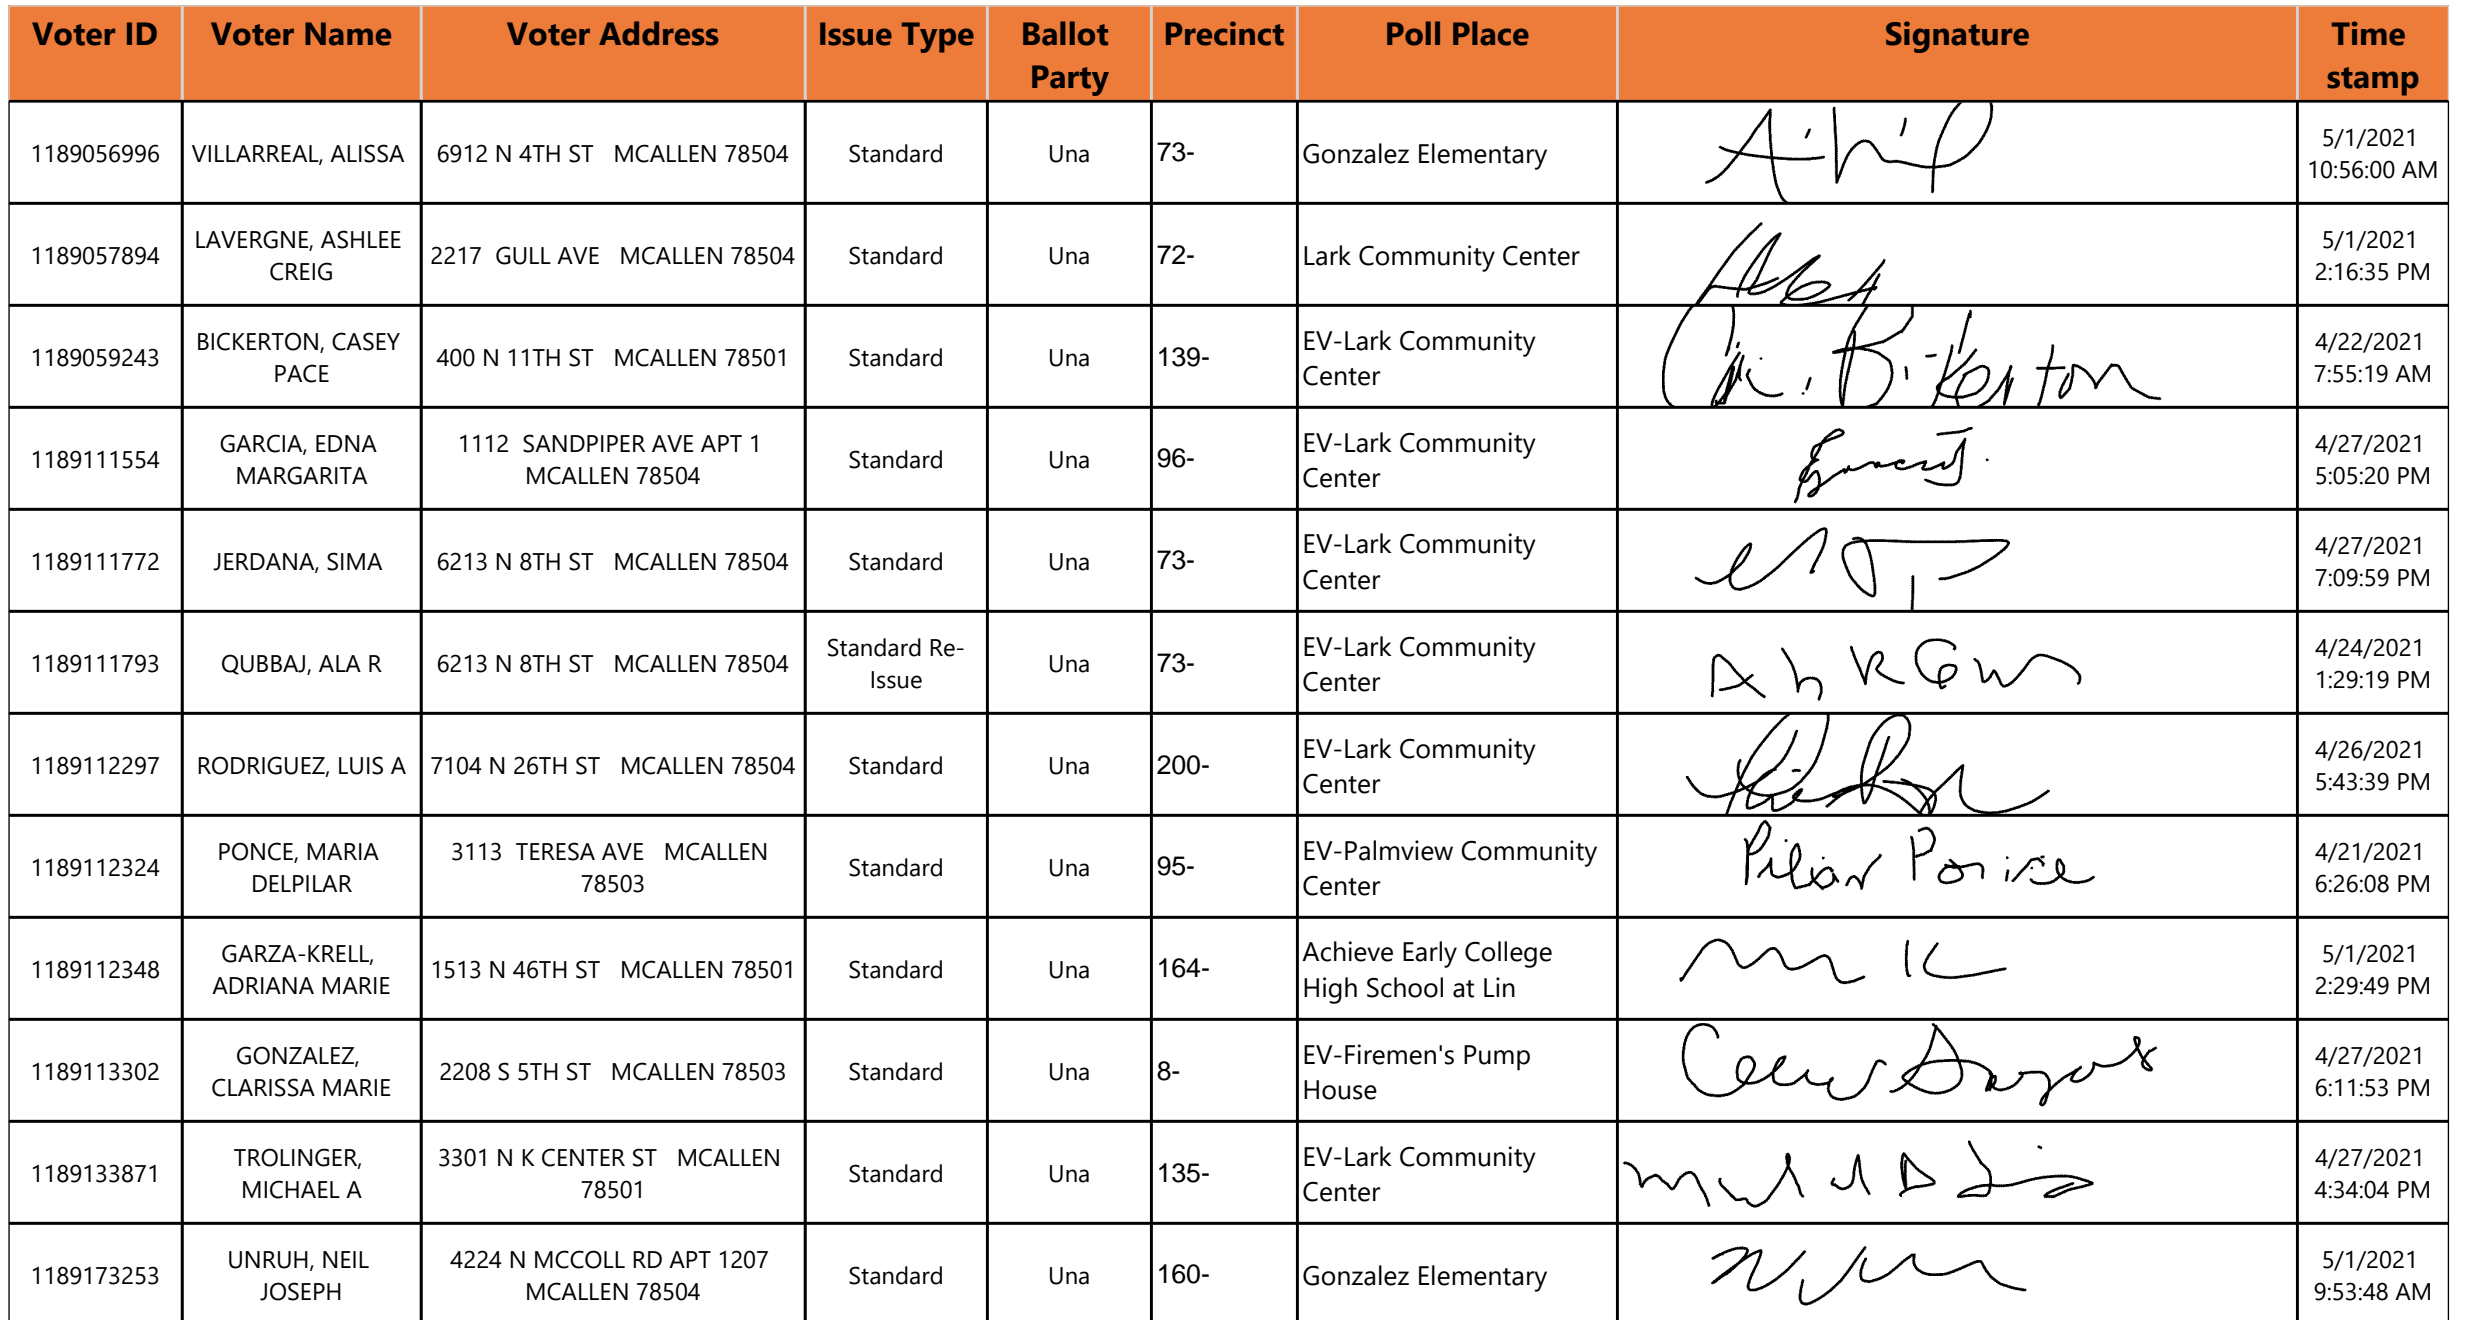 Voter ID Voter Name Voter Address Issue Type Ballot Party Precinct Poll Place Signature Time stamp
1189056996 VILLARREAL, ALISSA 6912 N 4TH ST MCALLEN 78504 Standard Una 73- Gonzalez Elementary 5/1/2021 10:56:00 AM
1189057894 LAVERGNE, ASHLEE CREIG 2217 GULL AVE MCALLEN 78504 Standard Una 72- Lark Community Center 5/1/2021 2:16:35 PM
1189059243 BICKERTON, CASEY PACE 400 N 11TH ST MCALLEN 78501 Standard Una 139- EV-Lark Community Center 4/22/2021 7:55:19 AM
1189111554 GARCIA, EDNA MARGARITA 1112 SANDPIPER AVE APT 1 MCALLEN 78504 Standard Una 96- EV-Lark Community Center 4/27/2021 5:05:20 PM
1189111772 JERDANA, SIMA 6213 N 8TH ST MCALLEN 78504 Standard Una 73- EV-Lark Community Center 4/27/2021 7:09:59 PM
1189111793 QUBBAJ, ALA R 6213 N 8TH ST MCALLEN 78504 Standard Re-Issue Una 73- EV-Lark Community Center 4/24/2021 1:29:19 PM
1189112297 RODRIGUEZ, LUIS A 7104 N 26TH ST MCALLEN 78504 Standard Una 200- EV-Lark Community Center 4/26/2021 5:43:39 PM
1189112324 PONCE, MARIA DELPILAR 3113 TERESA AVE MCALLEN 78503 Standard Una 95- EV-Palmview Community Center Pilar Ponce 4/21/2021 6:26:08 PM
1189112348 GARZA-KRELL, ADRIANA MARIE 1513 N 46TH ST MCALLEN 78501 Standard Una 164- Achieve Early College High School at Lin 5/1/2021 2:29:49 PM
1189113302 GONZALEZ, CLARISSA MARIE 2208 S 5TH ST MCALLEN 78503 Standard Una 8- EV-Firemen's Pump House 4/27/2021 6:11:53 PM
1189133871 TROLINGER, MICHAEL A 3301 N K CENTER ST MCALLEN 78501 Standard Una 135- EV-Lark Community Center 4/27/2021 4:34:04 PM
1189173253 UNRUH, NEIL JOSEPH 4224 N MCCOLL RD APT 1207 MCALLEN 78504 Standard Una 160- Gonzalez Elementary 5/1/2021 9:53:48 AM